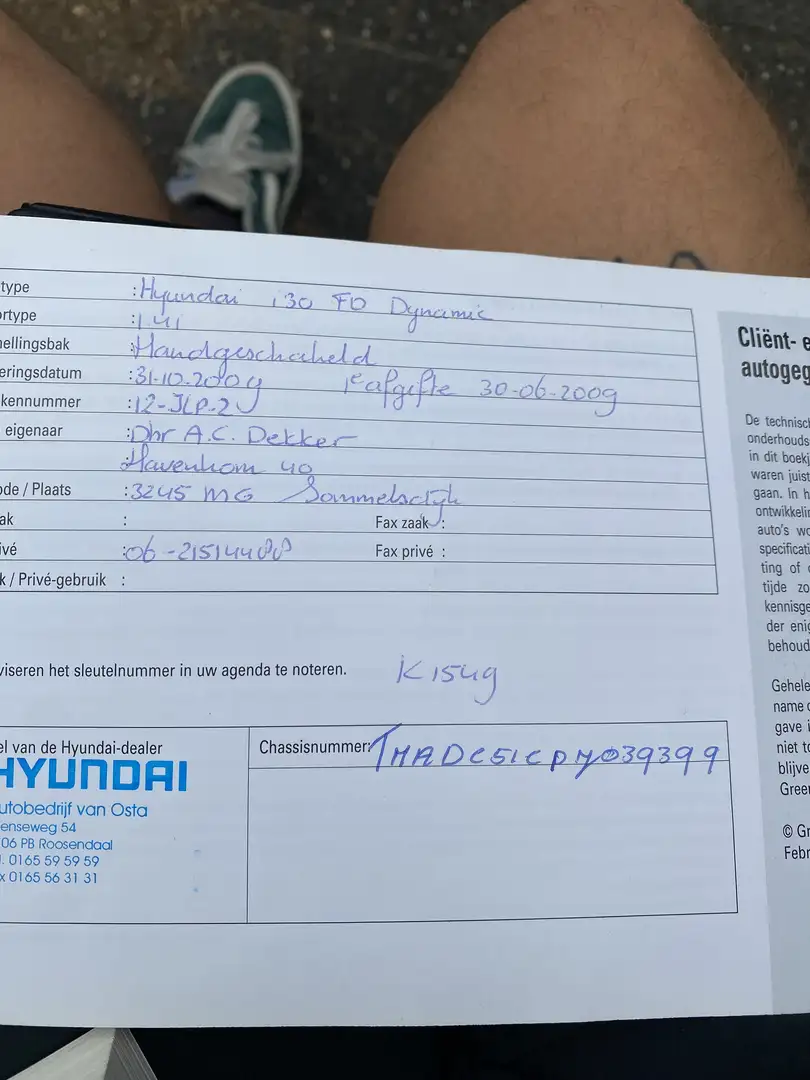 type :Hyundai i30 FD Dynamic
ortype :1.4i
nellingsbak :Handgeschakeld
eringsdatum :31-10-2009 1e afgifte 30-06-2009
kennummer :12-JLP-2
eigenaar :Dhr A.C. Dekker
:Havenhom 40
ode / Plaats :3245 MG Sommelsdijk
ak : Fax zaak :
ivé :06-21514488 Fax privé :
k / Privé-gebruik :
viseren het sleutelnummer in uw agenda te noteren. K1549
el van de Hyundai-dealer
HYUNDAI
utobedrijf van Osta
enseweg 54
06 PB Roosendaal
l. 0165 59 59 59
x 0165 56 31 31
Chassisnummer: TMADC51CP7J039399
Cliënt- e
autogeg
De technisch
onderhouds
in dit boekj
waren juist
gaan. In h
ontwikkelin
auto's wo
specificati
ting of
tijde zo
kennisge
der enig
behoud
Gehele
name o
gave i
niet to
blijve
Green
© Gr
Febr